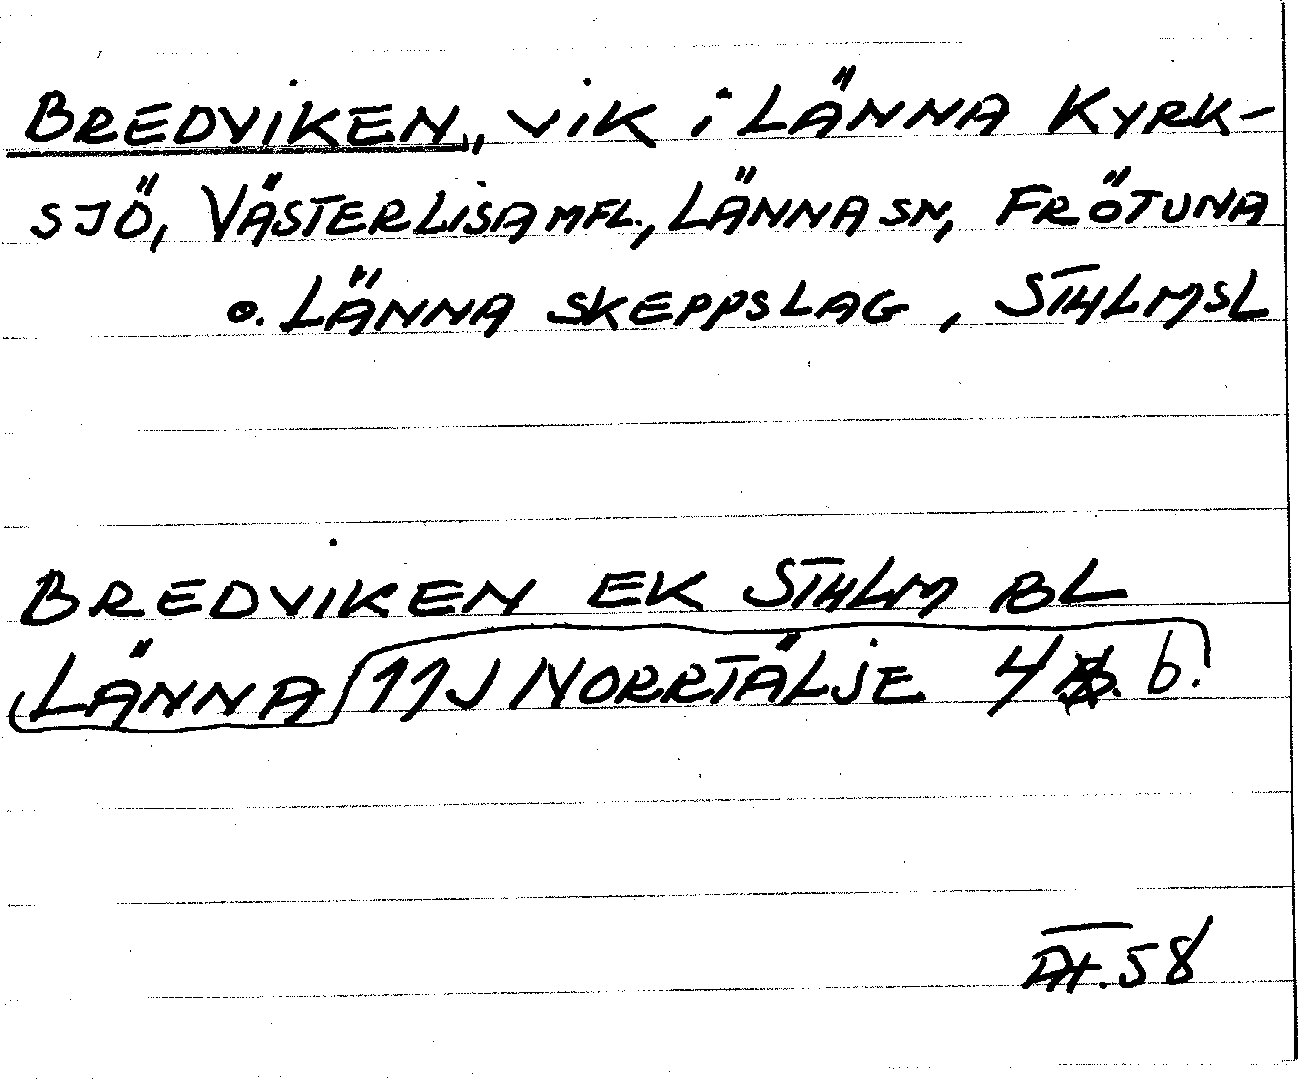 BREDVIKEN, VIK I LÄNNA KYRK-
SJÖ, VÄSTERLISA MFL., LÄNNA SN, FRÖTUNA
O. LÄNNA SKEPPSLAG, STHLMSL
BREDVIKEN EK STHLM BL
LÄNNA 11J NORRTÄLJE 4 b.
58